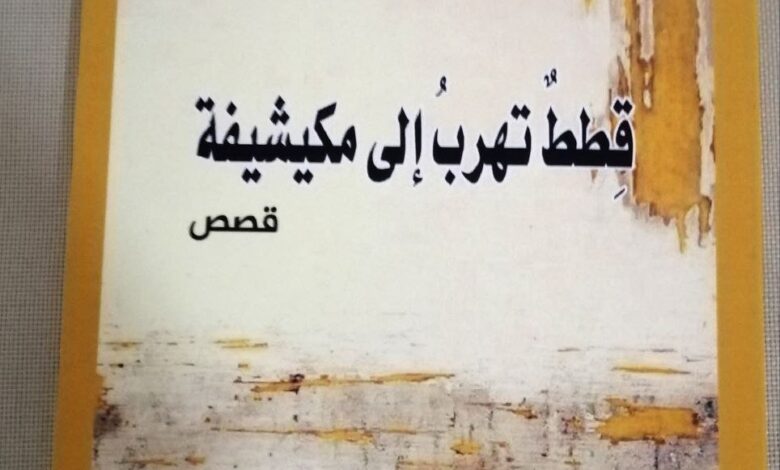 قِططٌ تهربُ إلى مكيشيفة
قصص